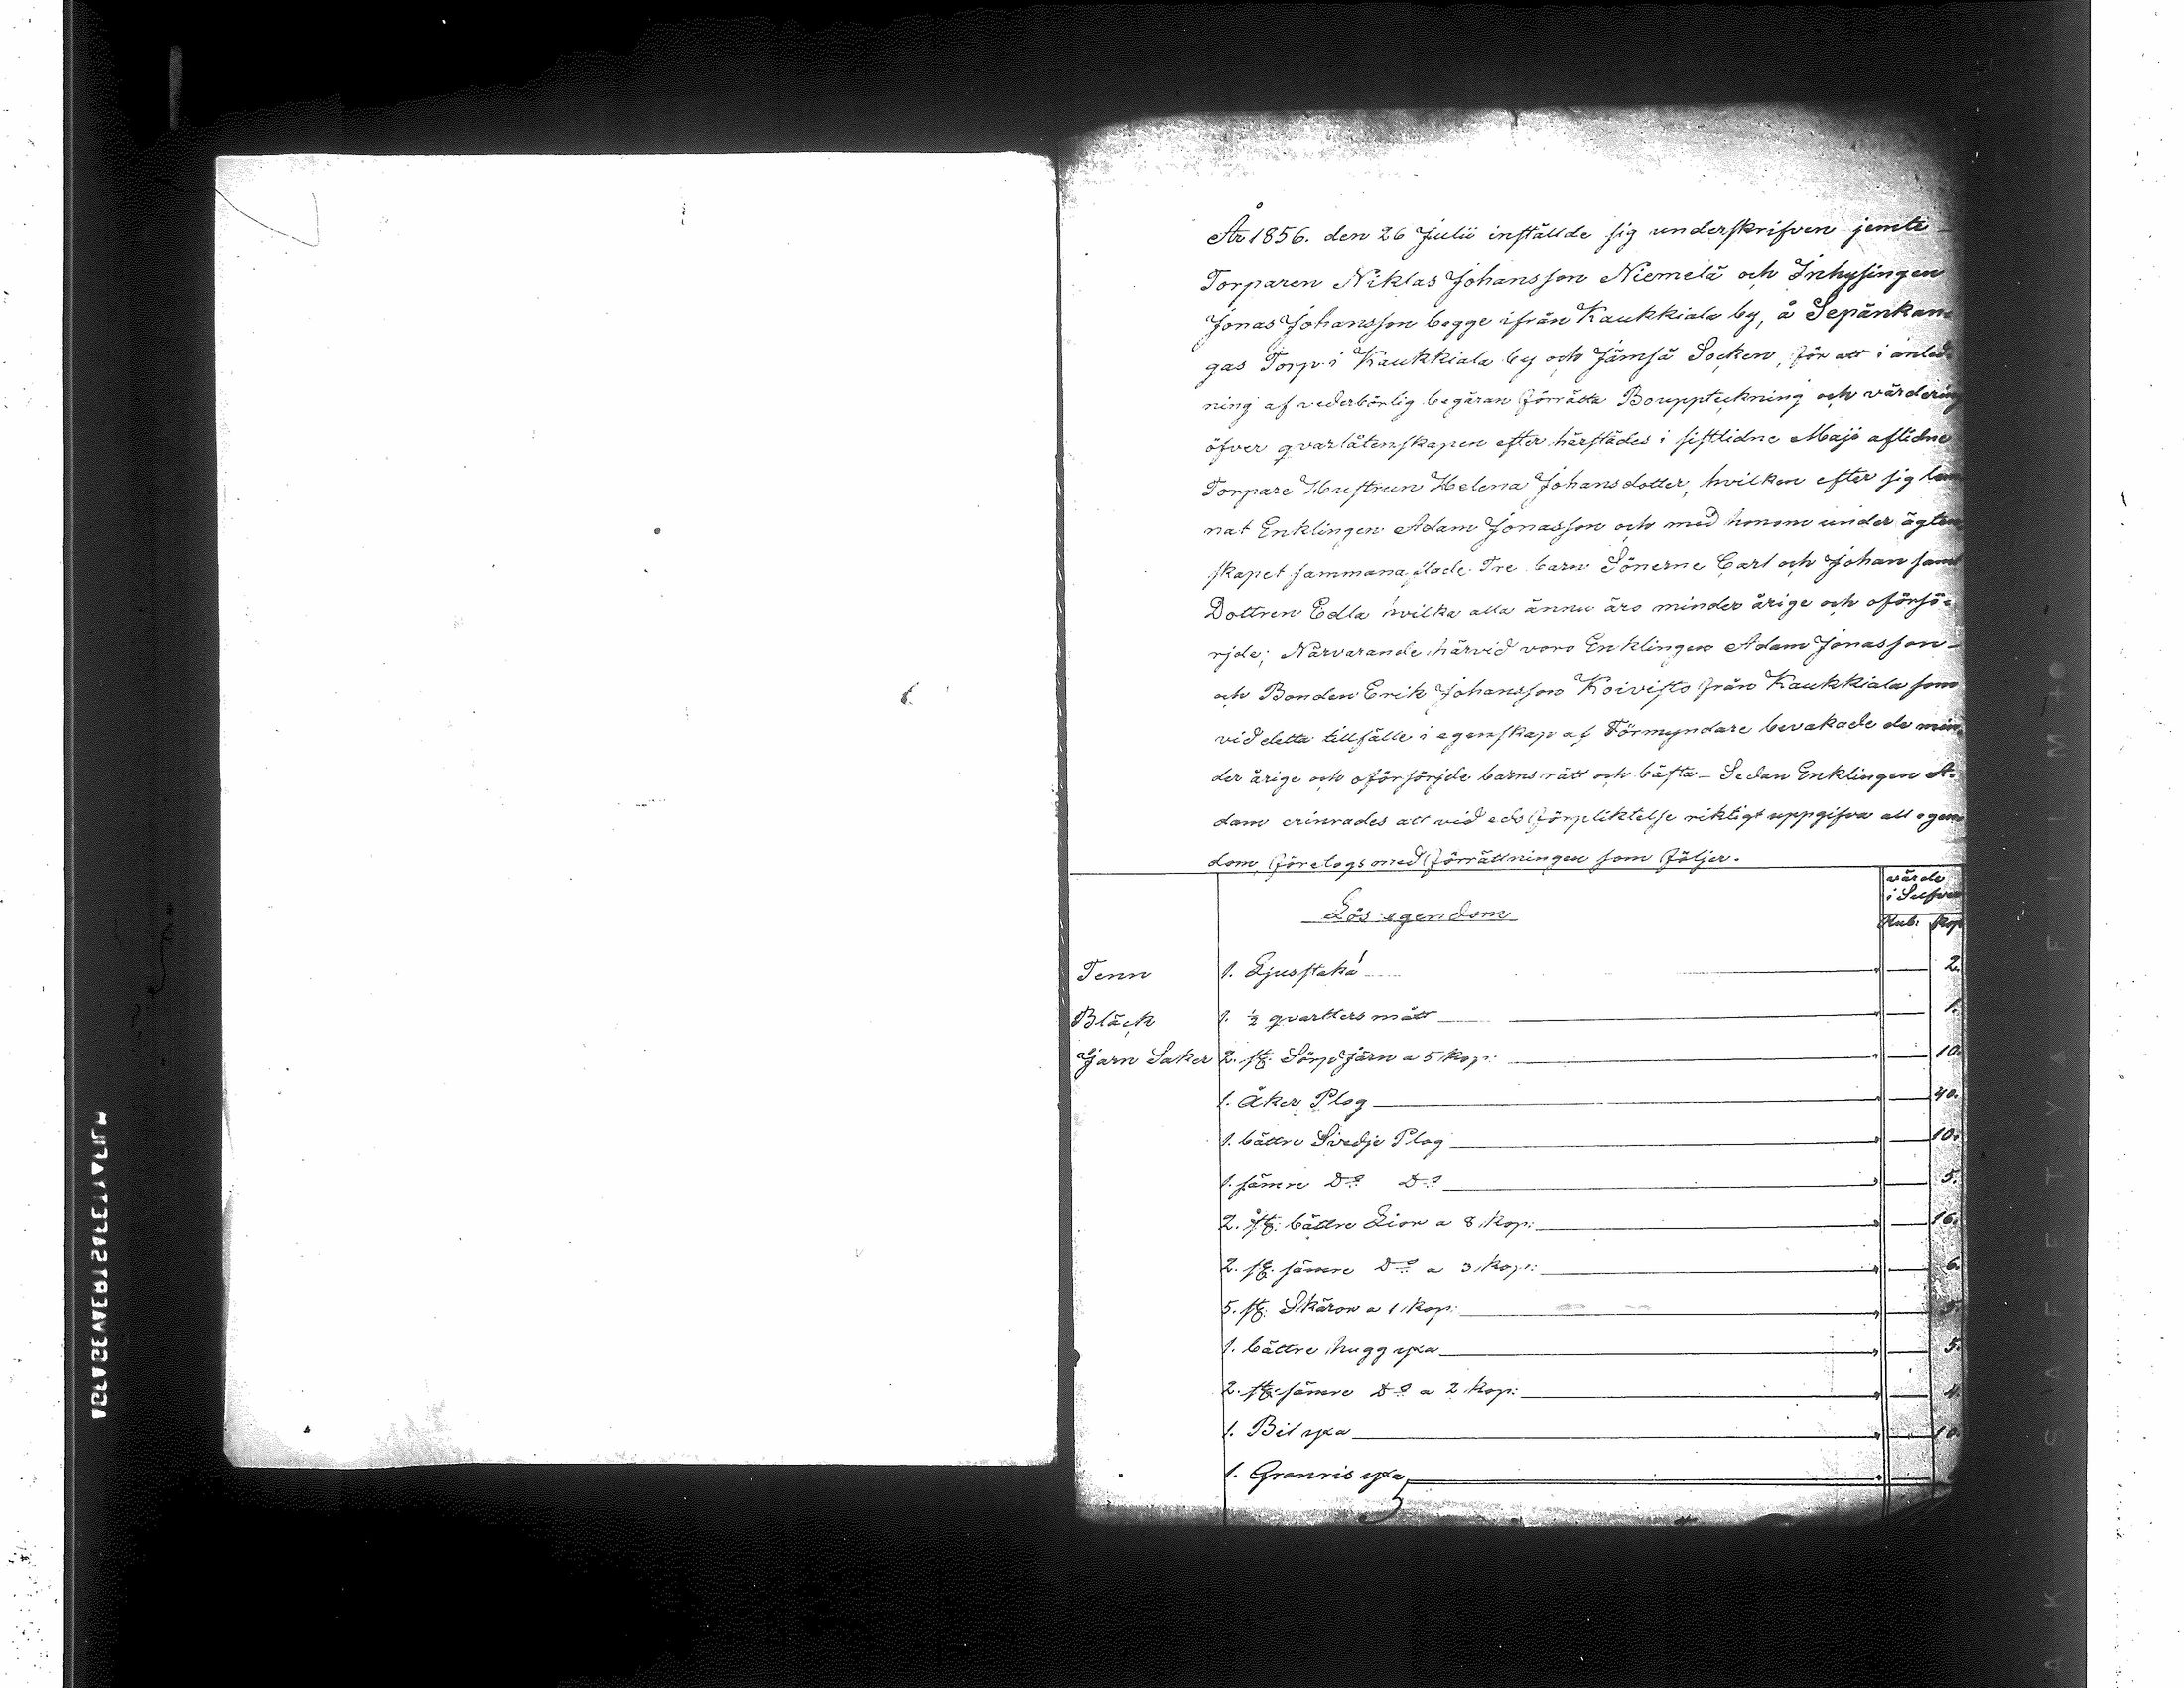 År 1856. den 26 Julii inställde sig underskrifven jemte
Torparen Niklas Johansson Niemelä och Inhysingen
Jonas Johansson begge ifrån Kaukkiala by, å Sepänkan-
gas Torp i Kaukkiala by och Jämsä Socken, för att i anled-
ning af vederbörlig begäran förrätta Bouppteckning och värdering
öfver qvarlåtenskapen efter härstädes i sistlidne Majo aflidne
Torpare Hustrun Helena Johansdotter, hvilken efter sig lem
nat Enklingen Adam Jonasson och med honom under ägten
skapet sammanaflade Tre barn Sönerne Carl och Johan samt
Dottren Edla hvilka alla ännu äro minder årige och oförsö-
rjde; Närvarande härvid voro Enklingen Adam Jonasson
och Bonden Erik Johansson Koivisto från Kaukkiala som
vid detta tillfälle i egenskap af Förmyndare bevakade de min-
der årige och oförsörjde barns rätt och bästa - Sedan Enklingen A-
dam erinrades att vid eds förpliktelse riktigt uppgifva all egen
dom, företogs med förrättningen som följer.
värde
i Silfver
Lös egendom
Rub: Kop
Tenn 1. Ljusstaka " — 2.
Bläck 1. ½ qvarters mått " — 1.
Jjarn Saker 2. st. Sörp Järn a 5 Kop: " — 10.
1. Åker Plog " — 40.
1. bättre Svedje Plog " — 10.
1. sämre Do Do " — 5.
2. st. bättre Lior a 8 Kop: " — 16.
2. st. sämre Do a 3 Kop: " — 6.
5. st. Skäror a 1 Kop: " — 5.
1. bättre hugg yxa " — 5.
2. st. sämre Do a 2 Kop: " — 4.
1. Bil yxa " — 10.
1. Granris yxa " —
FILM